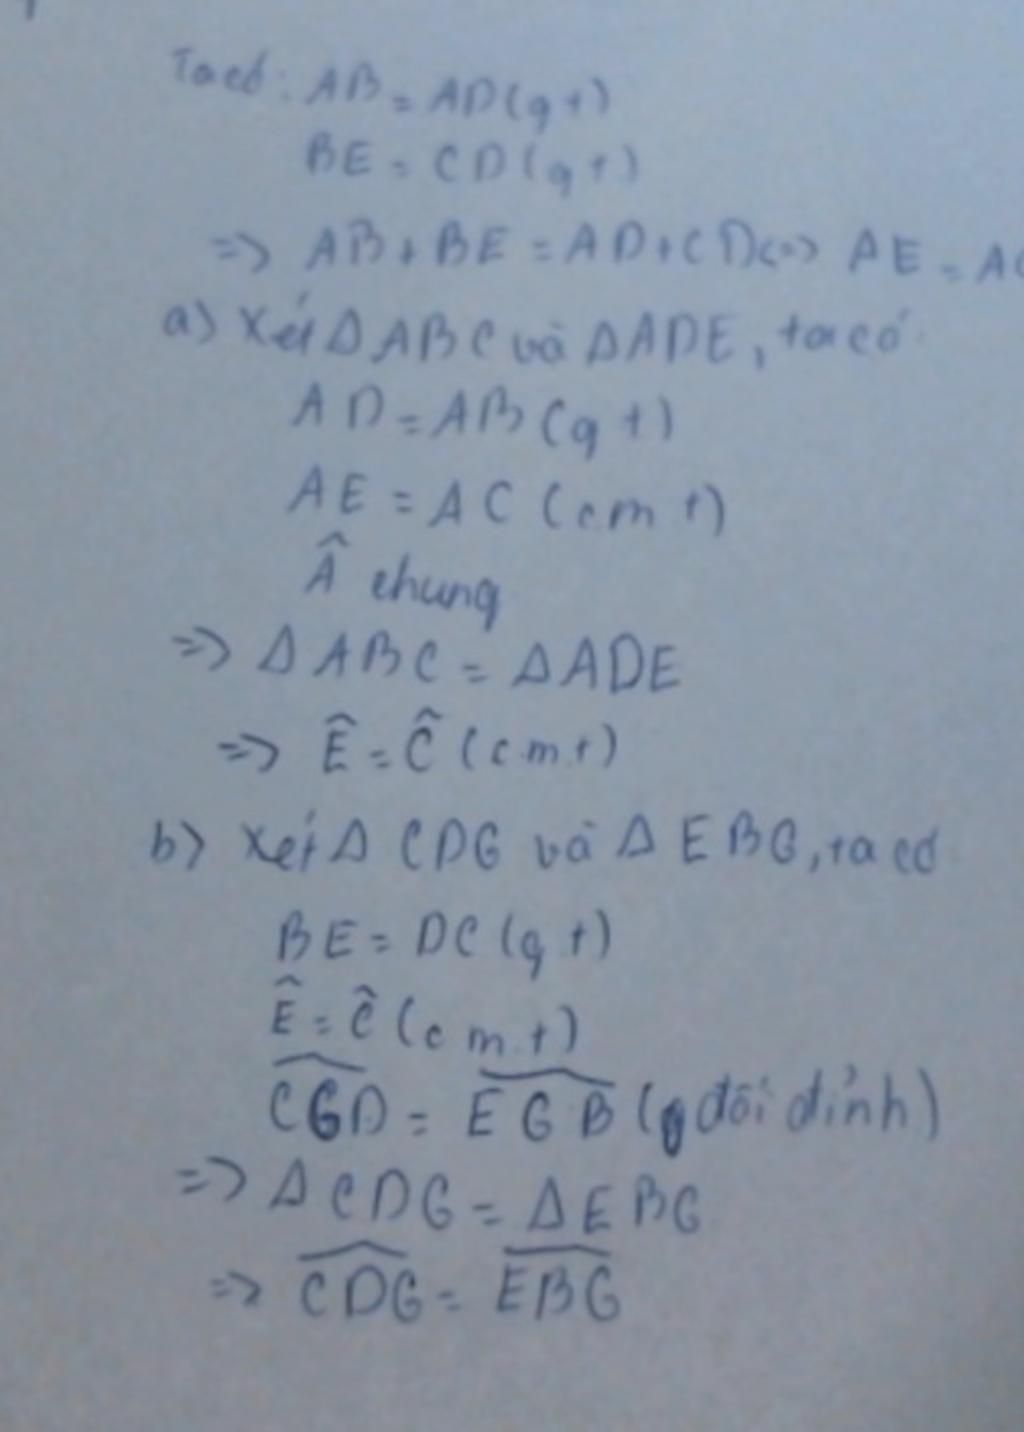 Ta có: AB = AD (gt)
BE = CD (gt)
=> AB + BE = AD + CD <=> AE = AC
a) Xét Δ ABC và Δ ADE, ta có
AD = AB (gt)
AE = AC (cmt)
Â chung
=> Δ ABC = Δ ADE
=> Ê = Ĉ (cmt)
b) Xét Δ CDG và Δ EBG, ta có
BE = DC (gt)
Ê = Ĉ (cmt)
CGD = EGB (đối đỉnh)
=> Δ CDG = Δ EBG
=> CDG = EBG